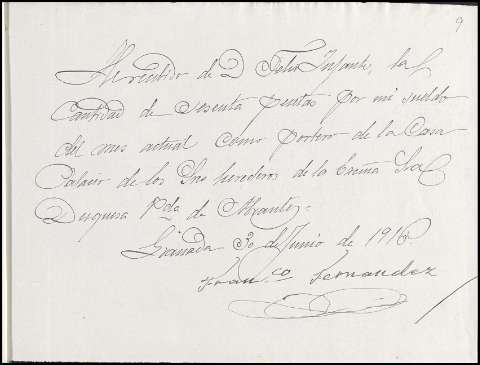 9
He recibido de D Felix Infante, la
Cantidad de Sesenta pesetas por mi sueldo
del mes actual como portero de la Casa
Palacio de los Sres herederos de la Exma Sra
Duquesa Vda de Abrantes.=
Granada 30 de Junio de 1916
Fran.co Fernandez